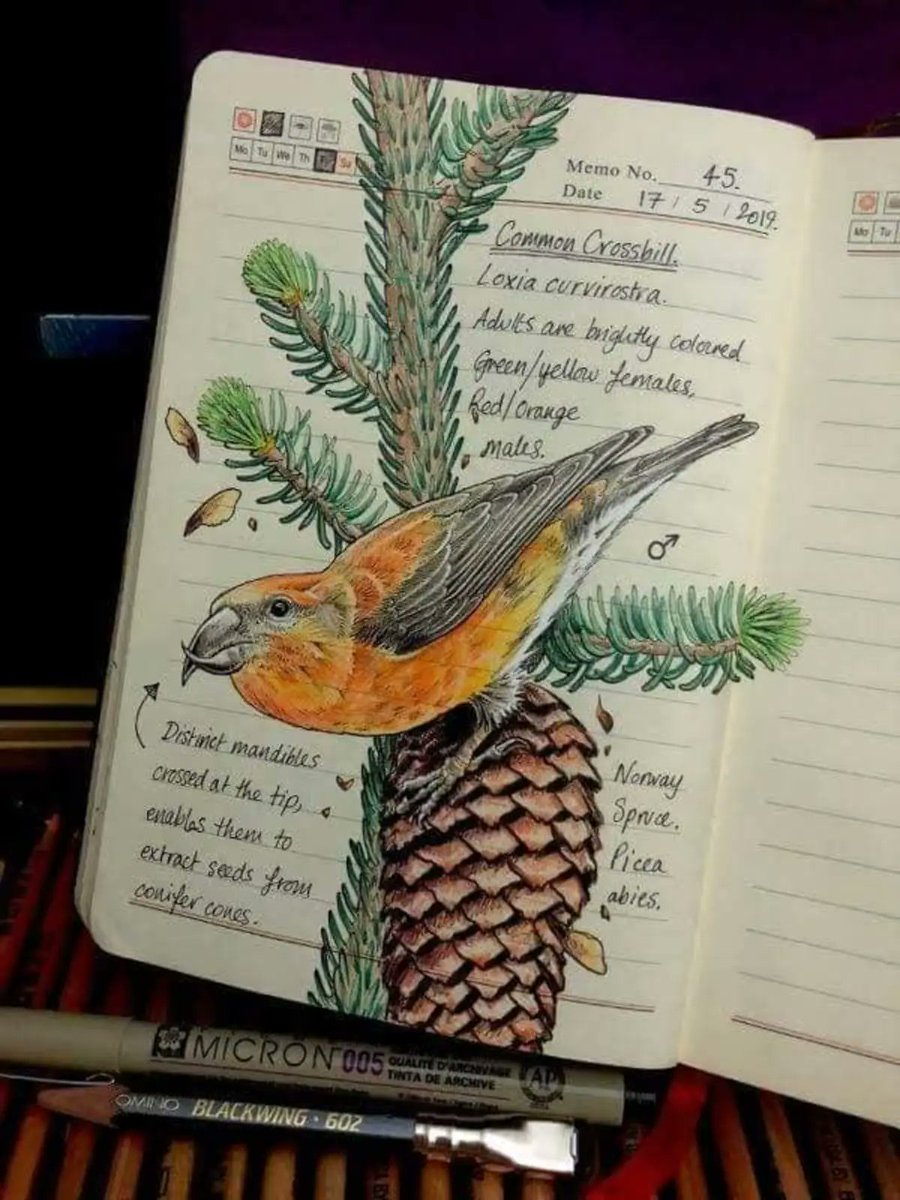 Mo Tu We Th Su
Memo No. 45.
Date 17 / 5 / 2019.
Common Crossbill.
Loxia curvirostra.
Adults are brightly coloured
Green/yellow females,
Red/Orange
males.
♂
Distinct mandibles
crossed at the tip,
enables them to
extract seeds from
conifer cones.
Norway
Spruce.
Picea
abies.
Mo Tu
MICRON 005
QUALITÉ D'ARCHIVAGE
TINTA DE ARCHIVE
AP
OMINO BLACKWING · 602